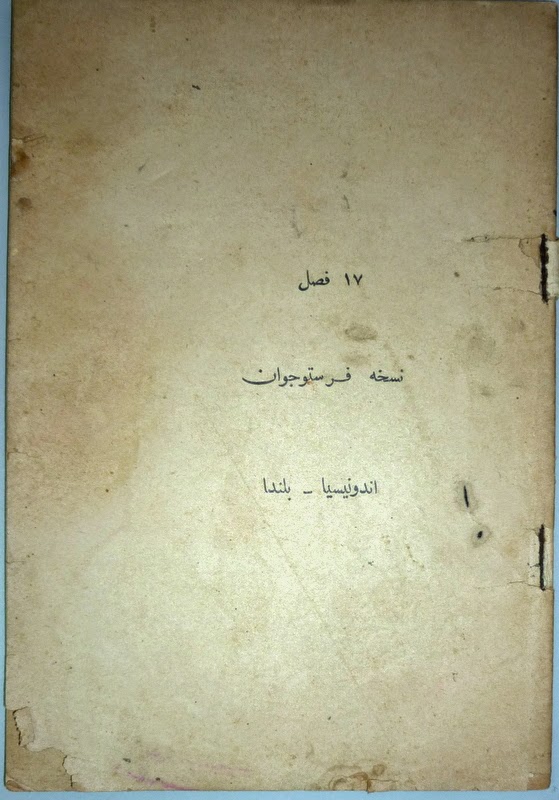 ١٧ فصل
نسخه فرستوجوان
اندونيسيا - بلندا